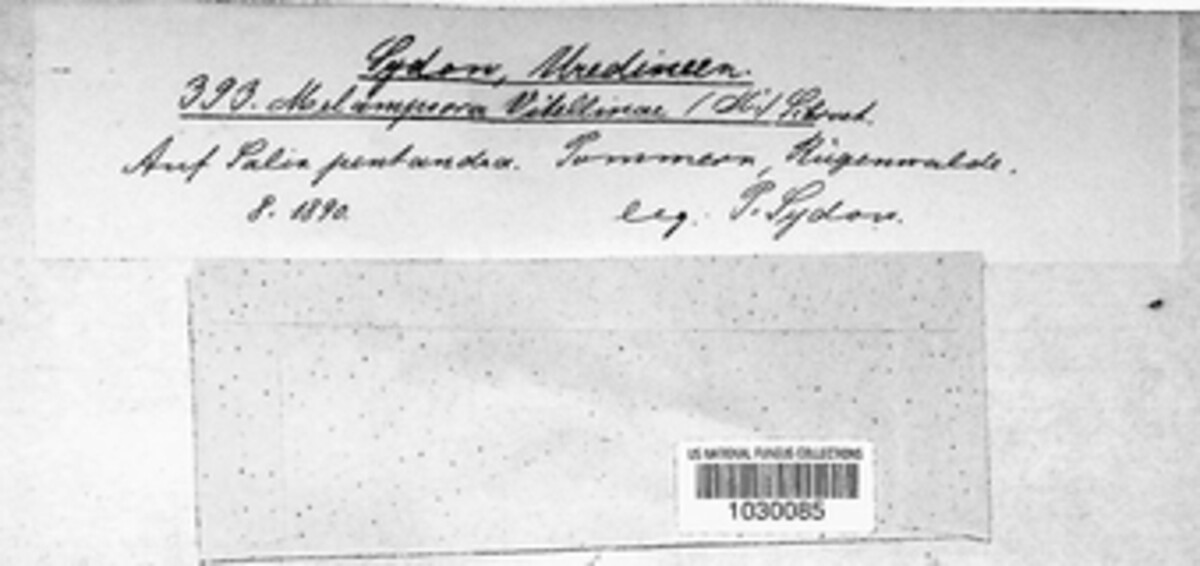 Sydow, Uredineen.
393. Melampsora Vitellinae (DC.) Schroet.
Auf Salix pentandra. Pommern, Rügenwalde.
8. 1890. leg. P. Sydow.
US NATIONAL FUNGUS COLLECTIONS
1030085